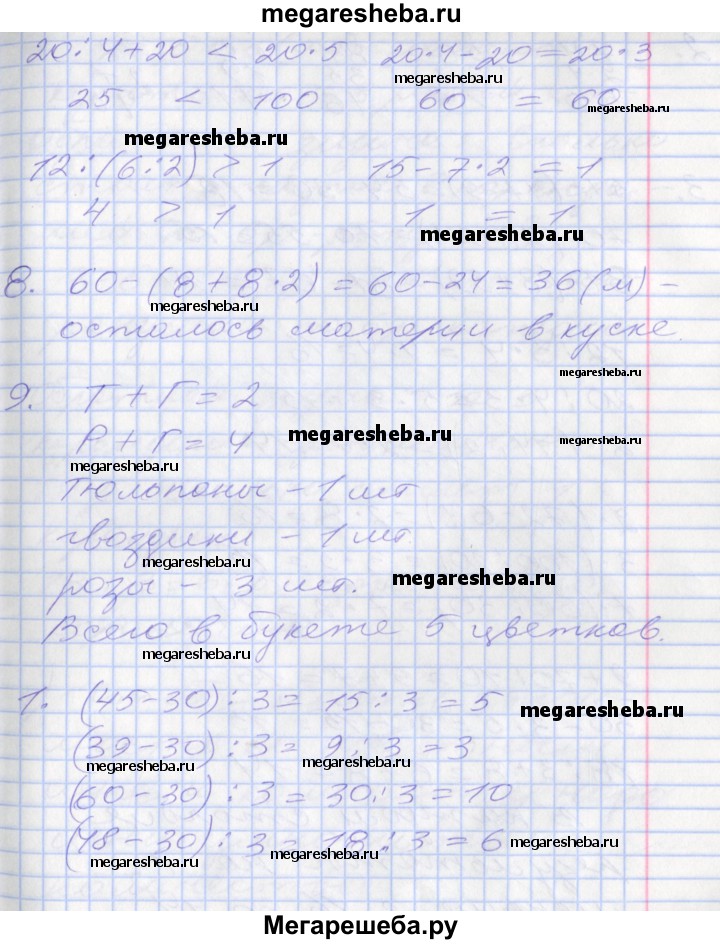 megaresheba.ru
20:4+20 < 20·5 20·4-20=20·3
megaresheba.ru
25 < 100 60 = 60
megaresheba.ru
megaresheba.ru
12:(6:2) > 1 15-7·2 = 1
4 > 1 1 = 1
megaresheba.ru
8. 60-(8+8·2)=60-24=36(м)-
megaresheba.ru
осталось материи в куске.
megaresheba.ru
9. Т+Г=2
Р+Г=4
megaresheba.ru
megaresheba.ru
megaresheba.ru
тюльпаны - 1 шт
гвоздики - 1 шт
megaresheba.ru
розы - 3 шт.
megaresheba.ru
Всего в букете 5 цветков.
megaresheba.ru
1. (45-30):3=15:3=5
megaresheba.ru
(39-30):3=9:3=3
megaresheba.ru
megaresheba.ru
(60-30):3=30:3=10
(48-30):3=18:3=6
megaresheba.ru
megaresheba.ru
megaresheba.ru
Мегарешеба.ру